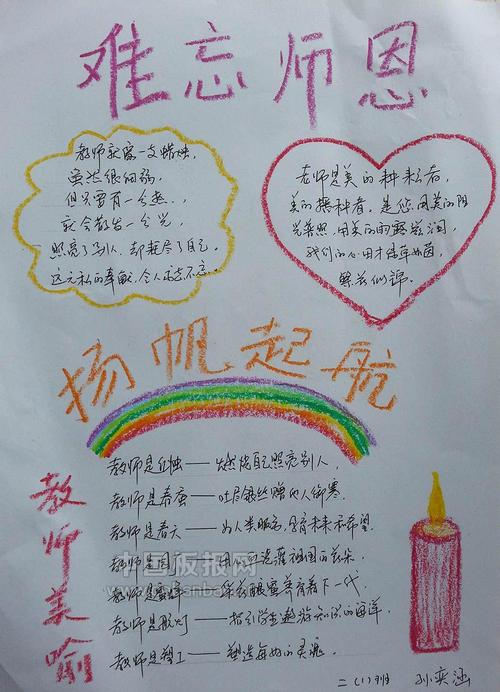 难忘师恩
教师就像一支蜡烛，
虽然很细弱，
但只要有一分热，
就会散发一分光，
照亮了别人，却耗尽了自己。
这无私的奉献，令人永志不忘。
老师是美的耕耘者，
美的播种者。是您用美的阳
光普照，用美的雨露滋润，
我们的心田才绿草如茵，
繁花似锦。
扬帆起航
教师美喻
教师是红烛——燃烧自己照亮别人，
教师是春蚕——吐尽银丝赠的人御寒
教师是春天——为人类服务，孕育未来和希望
教师是园丁——用心血浇灌祖国的花朵
教师是蜜蜂——采花酿蜜养育着下一代
教师是航灯——指引学生遨游知识的海洋
教师是塑工——塑造每的灵魂
中国板报网
二（1）班 孙奕涵